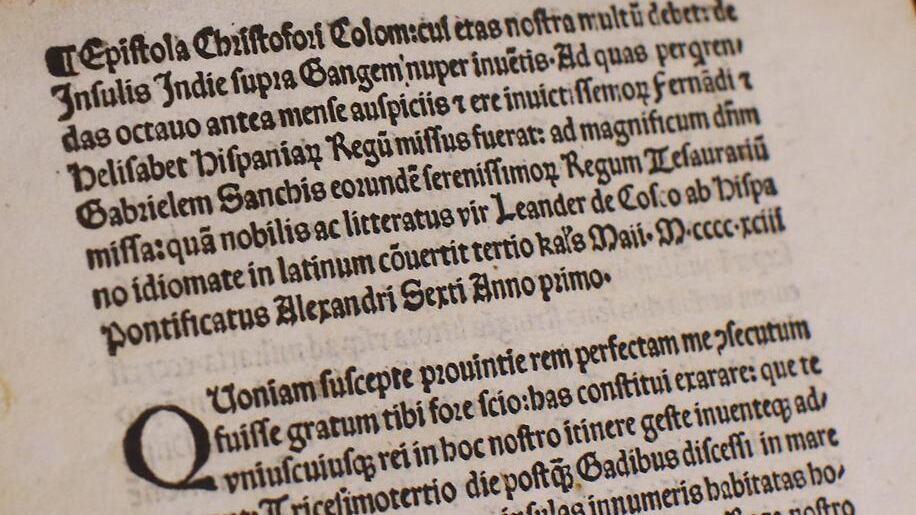 ¶ Epiſtola Chriſtofori Colom: cui etas noſtra multū debet: de
Inſulis Indie ſupra Gangem nuper inuētis. Ad quas perqren⸗
das octauo antea menſe auſpiciis ⁊ ere inuictiſſemoꝝ Fernādi ⁊
Heliſabet Hiſpaniaꝝ Regū miſſus fuerat: ad magnificum dñm
Gabrielem Sanchis eorundē ſereniſſimoꝝ Regum Teſaurariū
miſſa: quā nobilis ac litteratus vir Leander de Coſco ab Hiſpa
no idiomate in latinum cōuertit tertio kal's Maii. M.cccc.xciii
Pontificatus Alexandri Sexti Anno primo.
QUoniam ſuſcepte prouintie rem perfectam me ↄſecutum
fuiſſe gratum tibi fore ſcio: has conſtitui exarare: que te
vniuſcuiuſqꝫ rei in hoc noſtro itinere geſte inuenteqꝫ ad⸗
Triceſimotertio die poſtqꝫ̄ Gadibus diſceſſi in mare
inſulas innumeris habitatas ho⸗
noſtro